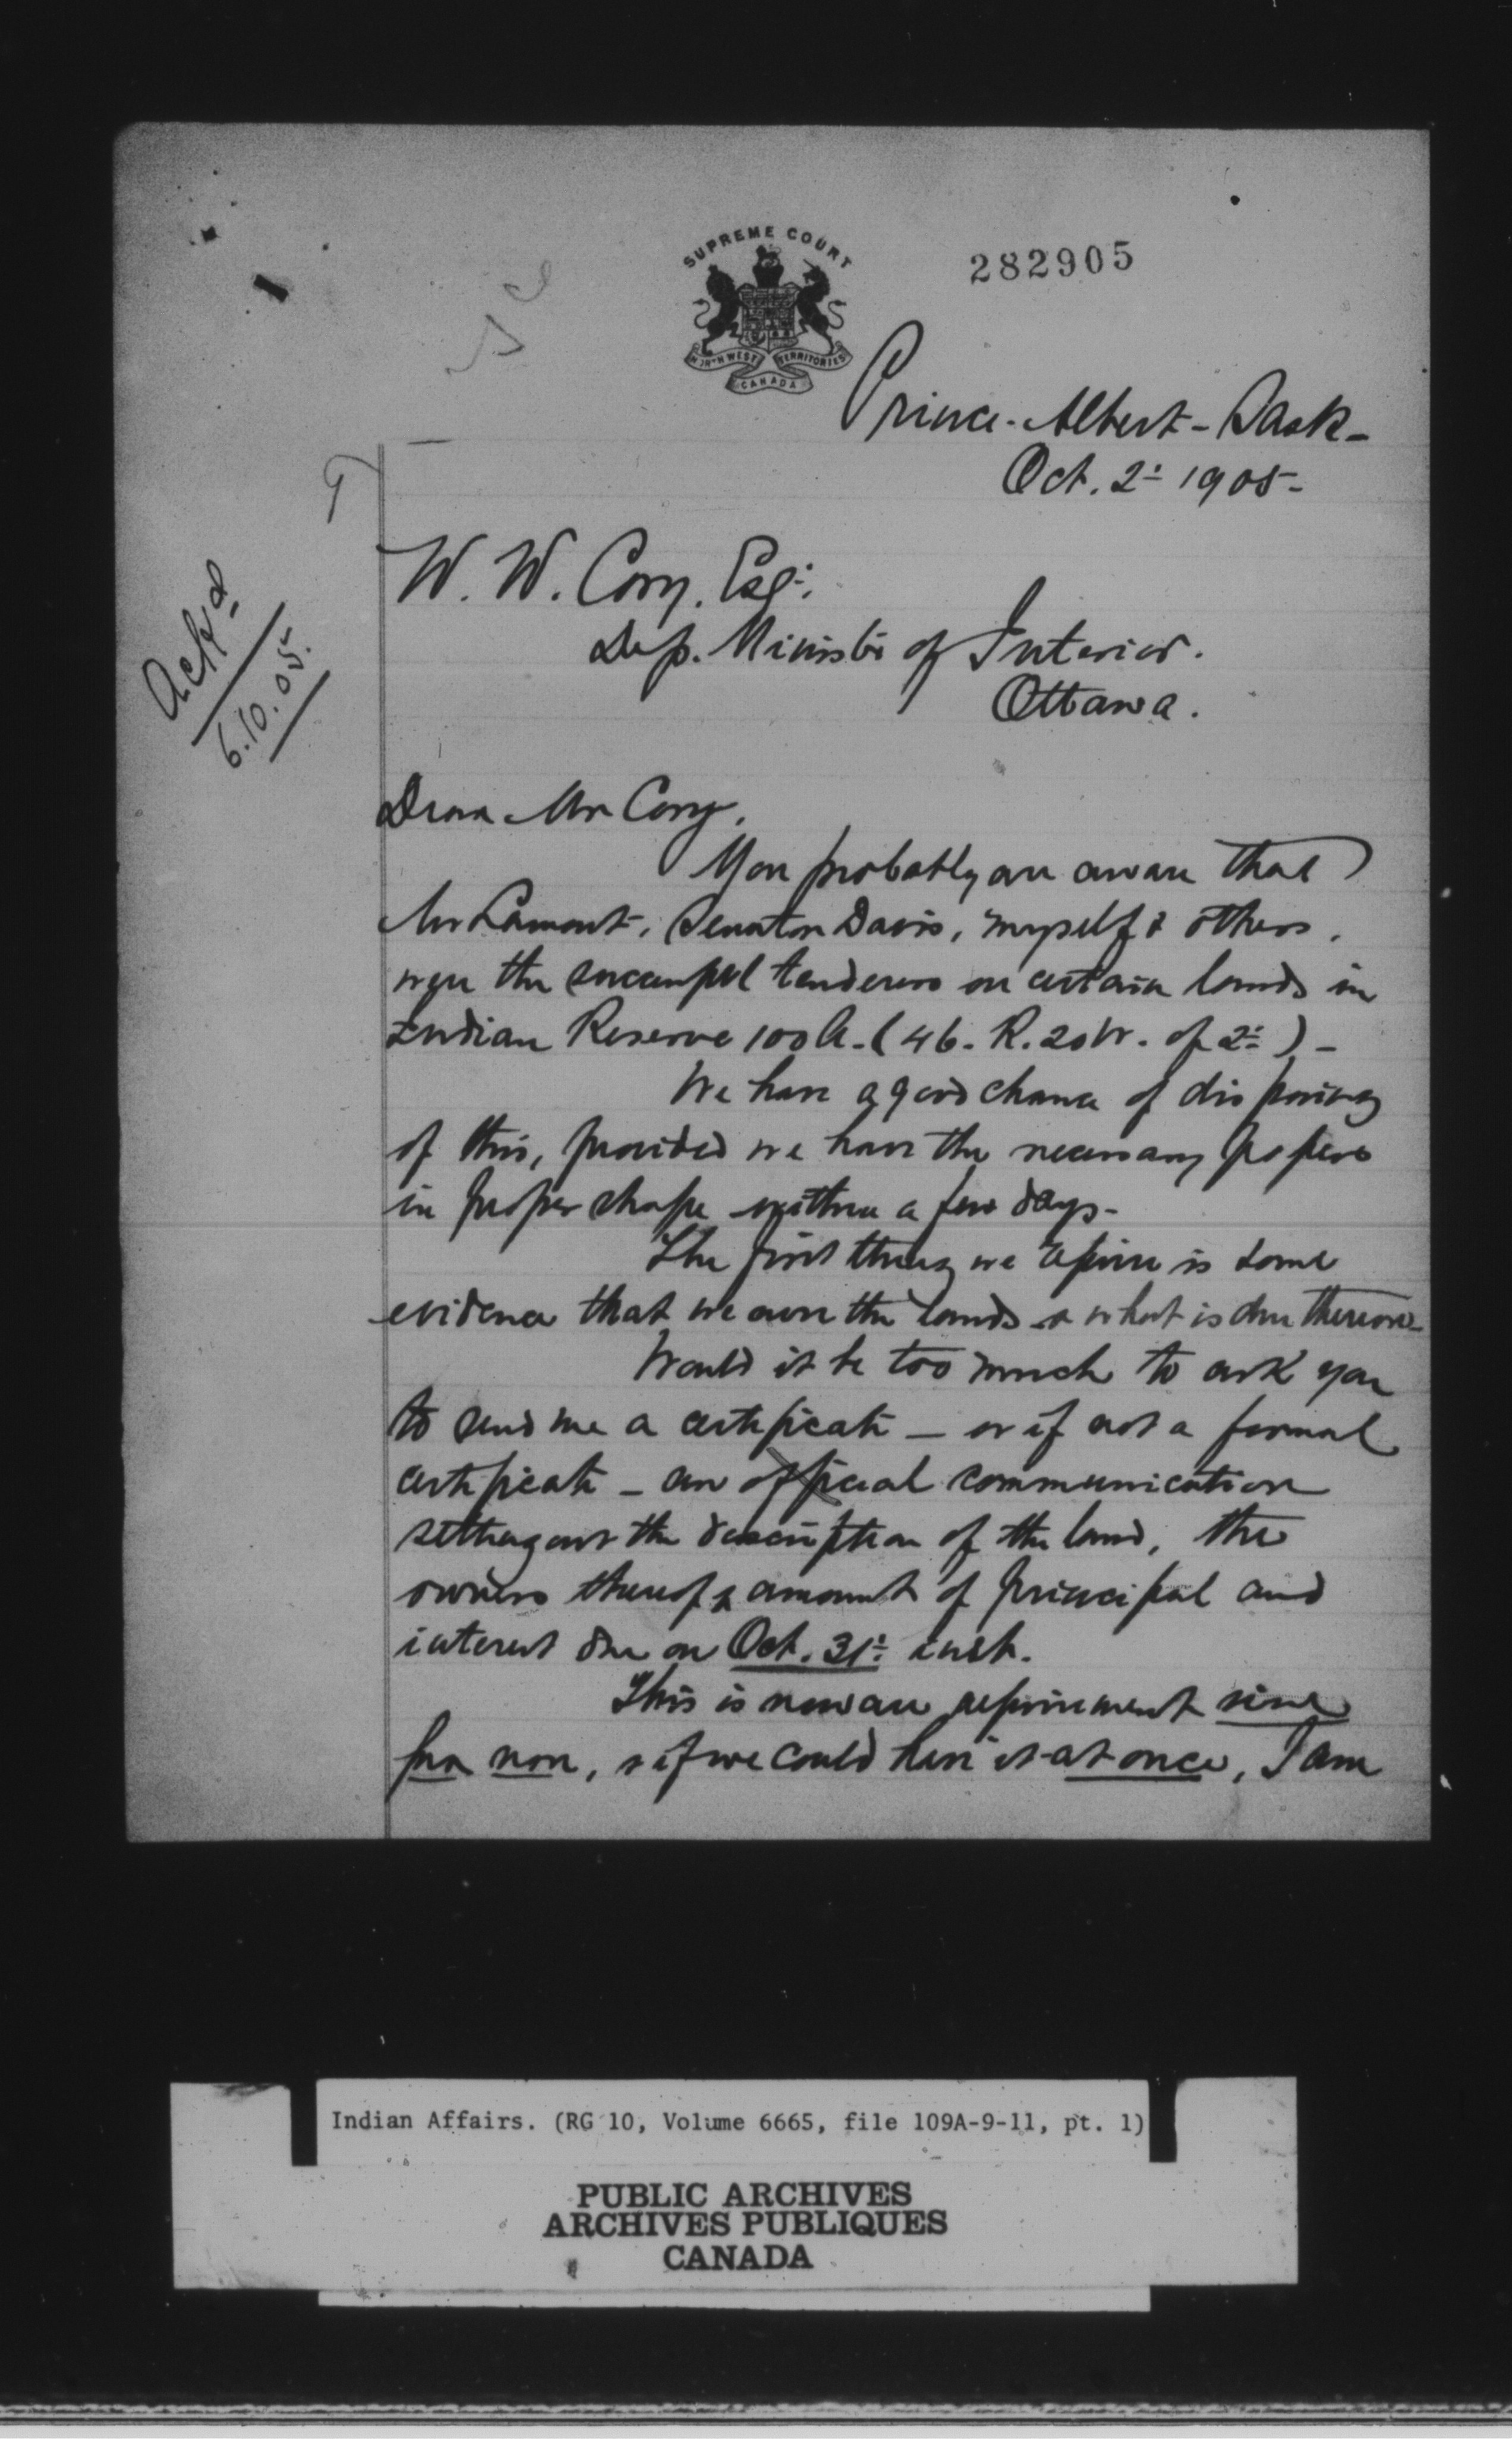 SUPREME COURT
NORTH WEST TERRITORIES
CANADA
282905
Prince-Albert-Sask-
Oct. 2: 1905-
Ackd.
6.10.05.
W. W. Cory. Esq:
Dep. Minister of Interior.
Ottawa.
Dear Mr Cory,
You probably are aware that
Mr Lamont, Senator Davis, myself & others,
were the successful tenderers on certain lands in
Indian Reserve 100A. (46. R. 20 W. of 2:) -
We have a good chance of disposing
of this, provided we have the necessary papers
in proper shape within a few days-
The first thing we require is some
evidence that we own the lands & what is due thereon-
Would it be too much to ask you
to send me a certificate - or if not a formal
certificate - an official communication
setting out the description of the land, the
owners thereof & amount of principal and
interest due on Oct. 31: inst.
This is now a requirement sine
qua non, & if we could have it at once, I am
Indian Affairs. (RG 10, Volume 6665, file 109A-9-11, pt. 1)
PUBLIC ARCHIVES
ARCHIVES PUBLIQUES
CANADA